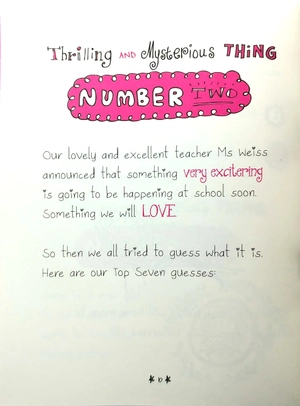 Thrilling AND Mysterious THING
NUMBER TWO
Our lovely and excellent teacher Ms Weiss
announced that something very excitering
is going to be happening at school soon.
Something we will LOVE
So then we all tried to guess what it is.
Here are our Top Seven guesses: